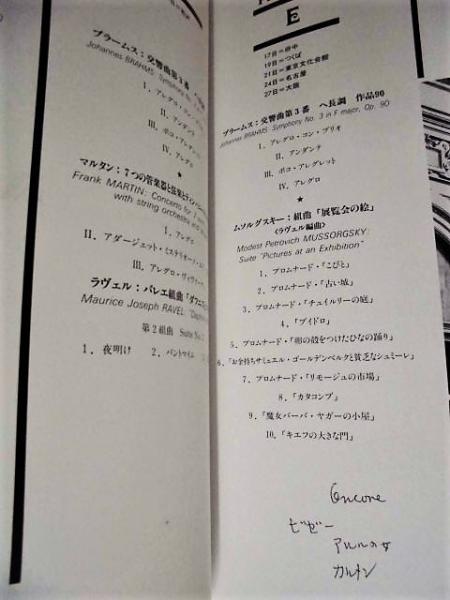 ブラームス：交響曲第3番
Johannes BRAHMS: Symphony No.
I. アレグロ・コン・
II. アンダンテ
III. ポコ・アレグレット
IV. アレグロ
★
マルタン：7つの管楽器と弦楽とティンパニー
Frank MARTIN: Concerto for 7
with string orchestra and
I. アレグロ
II. アダージェット・ミステリオーソ・
III. アレグロ・ヴィヴァーチェ
ラヴェル：バレエ組曲「ダフニス
Maurice Joseph RAVEL: "Daphnis
第2組曲 Suite No. 2
1. 夜明け 2. パントマイム 3.
E
17日＝府中
19日＝つくば
21日＝東京文化会館
24日＝名古屋
27日＝大阪
ブラームス：交響曲第3番 ヘ長調 作品90
Johannes BRAHMS: Symphony No. 3 in F major, Op. 90
I. アレグロ・コン・ブリオ
II. アンダンテ
III. ポコ・アレグレット
IV. アレグロ
★
ムソルグスキー：組曲「展覧会の絵」
〈ラヴェル編曲〉
Modest Petrovich MUSSORGSKY:
Suite "Pictures at an Exhibition"
1. プロムナード・「こびと」
2. プロムナード・「古い城」
3. プロムナード・「チュイルリーの庭」
4. 「ブイドロ」
5. プロムナード・「卵の殻をつけたひなの踊り」
6. 「お金持ちサミュエル・ゴールデンベルクと貧乏なシュミーレ」
7. プロムナード・「リモージュの市場」
8. 「カタコンブ」
9. 「魔女バーバ・ヤガーの小屋」
10. 「キエフの大きな門」
Encore
ビゼー
アルルの女
カルメン